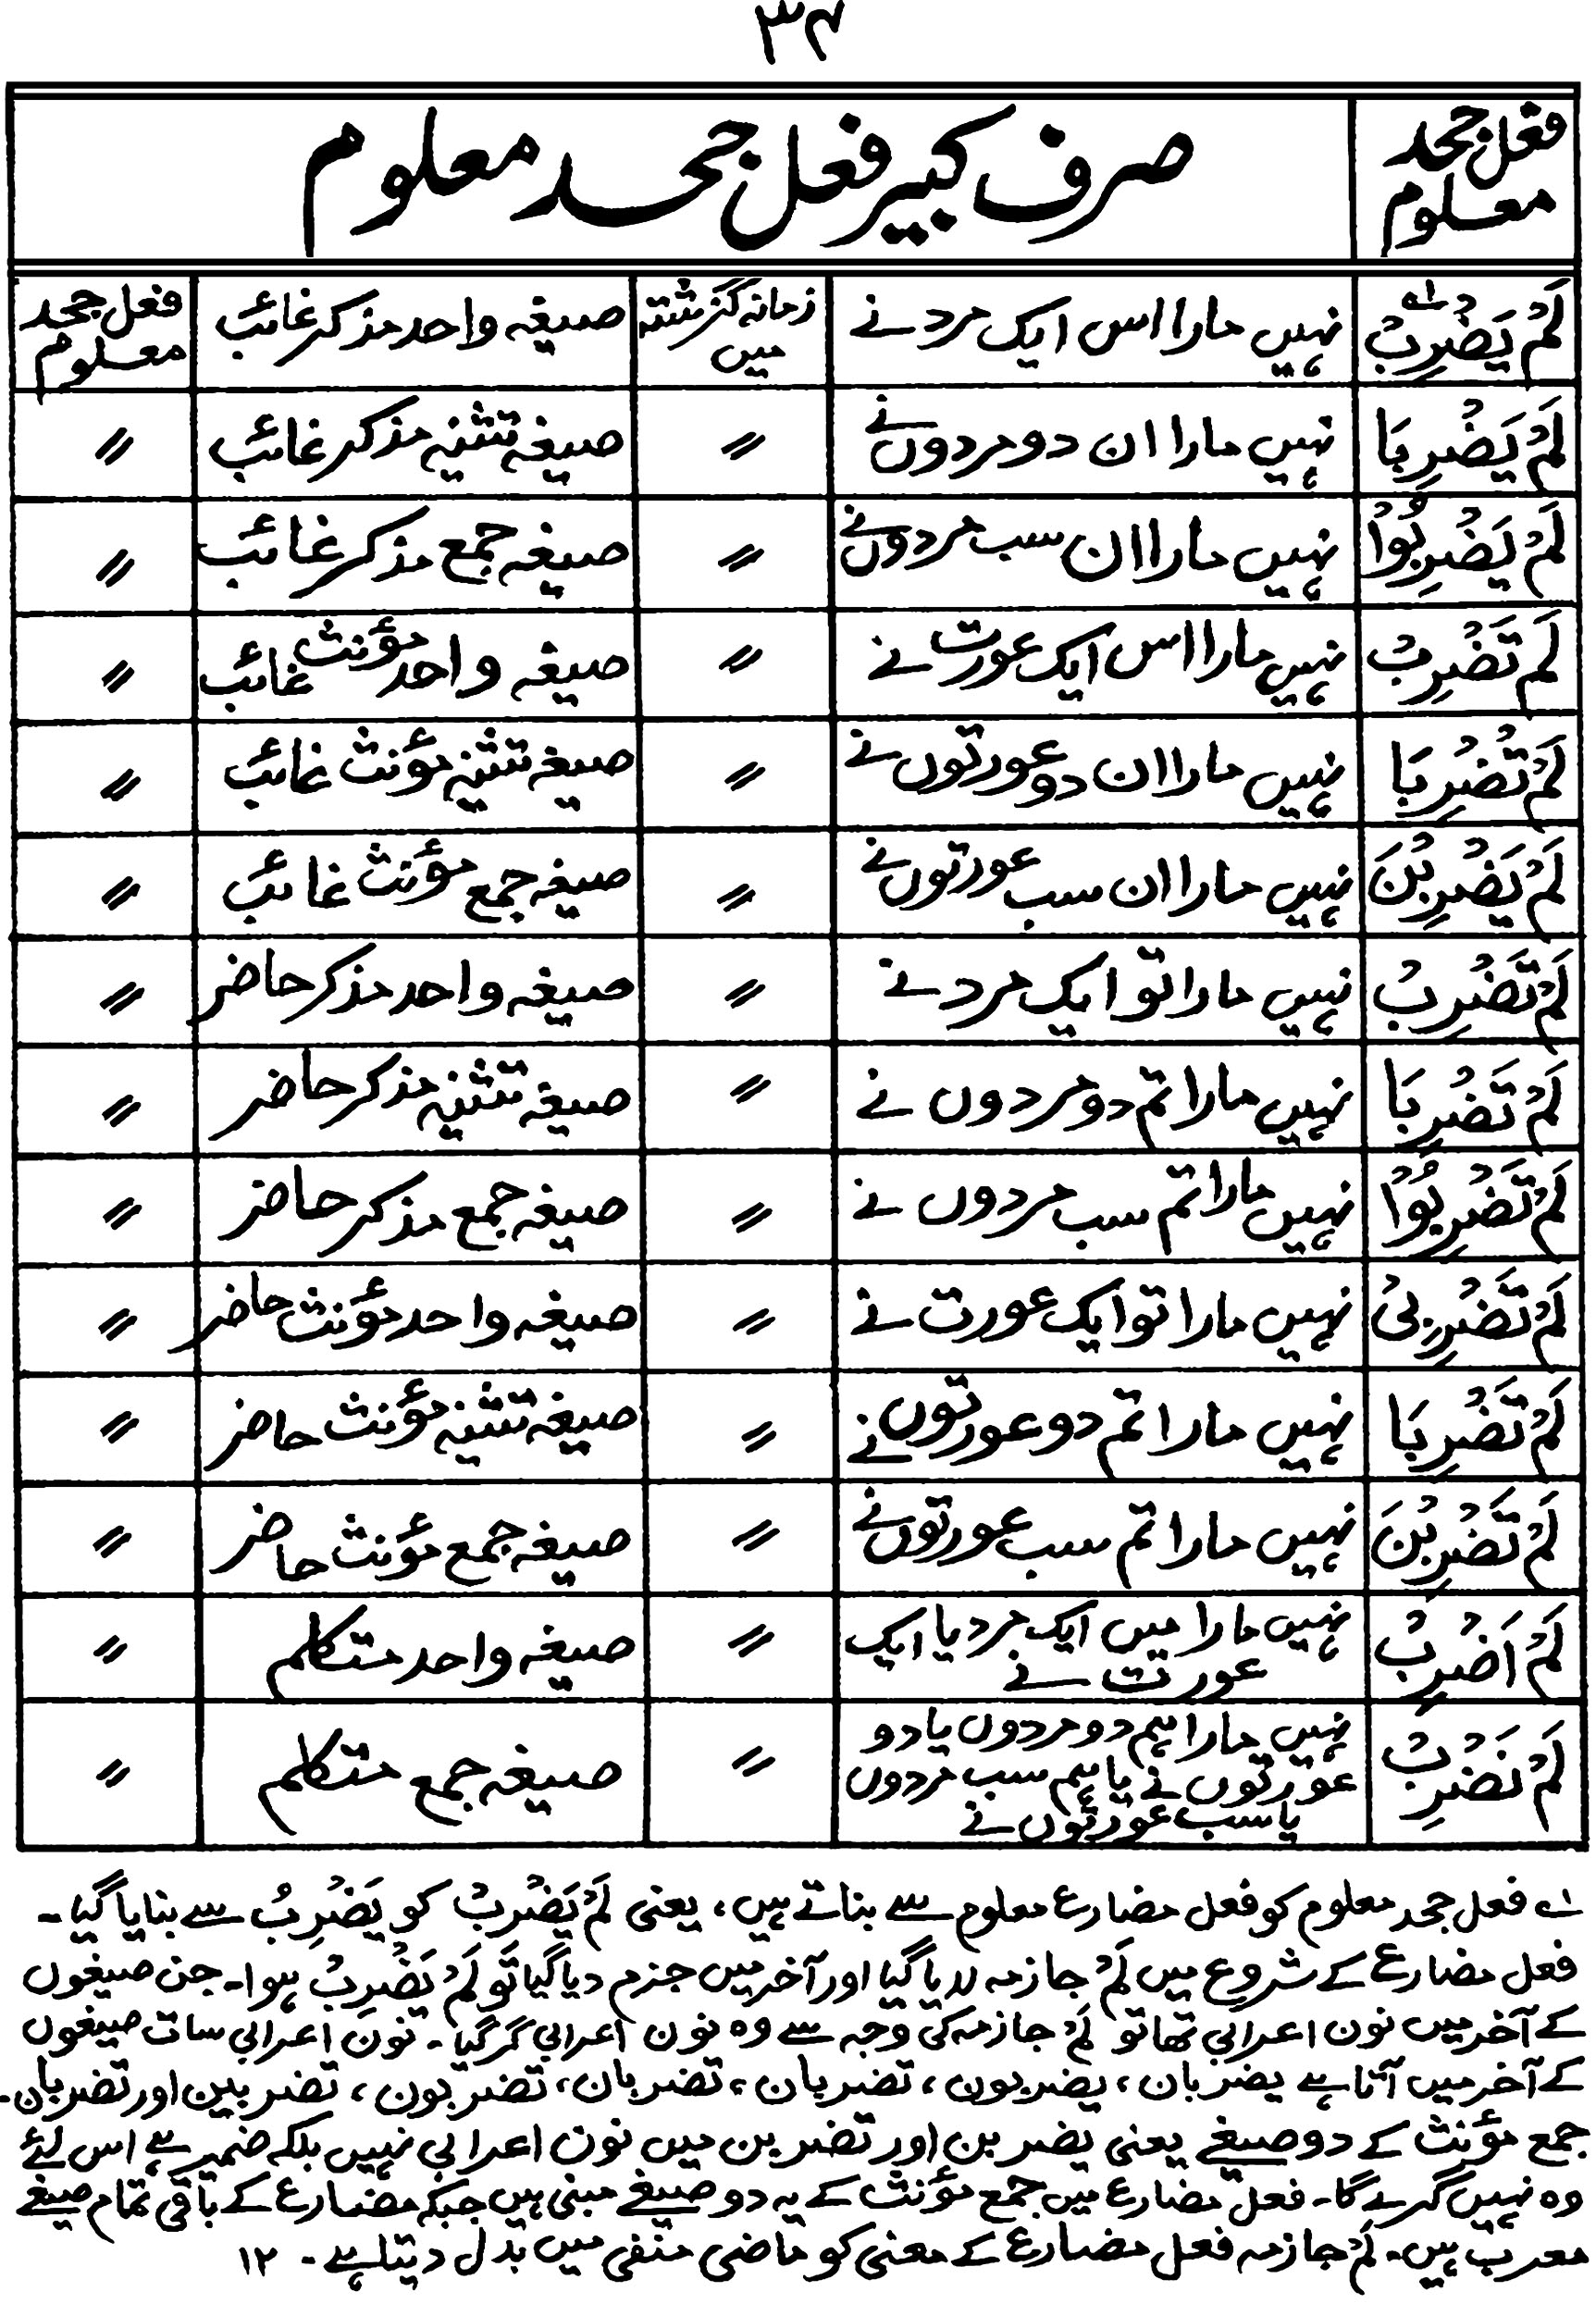 ۳۴
فعل جحد معلوم
صرف کبیر فعل جحد معلوم
لَمْ يَضْرِبْ ؎۱ نہیں مارا اس ایک مرد نے زمانہ گزشتہ میں صیغہ واحد مذکر غائب فعل جحد معلوم
لَمْ يَضْرِبَا نہیں مارا ان دو مردوں نے 〃 صیغہ تثنیہ مذکر غائب 〃
لَمْ يَضْرِبُوْا نہیں مارا ان سب مردوں نے 〃 صیغہ جمع مذکر غائب 〃
لَمْ تَضْرِبْ نہیں مارا اس ایک عورت نے 〃 صیغہ واحد مؤنث غائب 〃
لَمْ تَضْرِبَا نہیں مارا ان دو عورتوں نے 〃 صیغہ تثنیہ مؤنث غائب 〃
لَمْ يَضْرِبْنَ نہیں مارا ان سب عورتوں نے 〃 صیغہ جمع مؤنث غائب 〃
لَمْ تَضْرِبْ نہیں مارا تو ایک مرد نے 〃 صیغہ واحد مذکر حاضر 〃
لَمْ تَضْرِبَا نہیں مارا تم دو مردوں نے 〃 صیغہ تثنیہ مذکر حاضر 〃
لَمْ تَضْرِبُوْا نہیں مارا تم سب مردوں نے 〃 صیغہ جمع مذکر حاضر 〃
لَمْ تَضْرِبِىْ نہیں مارا تو ایک عورت نے 〃 صیغہ واحد مؤنث حاضر 〃
لَمْ تَضْرِبَا نہیں مارا تم دو عورتوں نے 〃 صیغہ تثنیہ مؤنث حاضر 〃
لَمْ تَضْرِبْنَ نہیں مارا تم سب عورتوں نے 〃 صیغہ جمع مؤنث حاضر 〃
لَمْ اَضْرِبْ نہیں مارا میں ایک مرد یا ایک عورت نے 〃 صیغہ واحد متکلم 〃
لَمْ نَضْرِبْ نہیں مارا ہم دو مردوں یا دو عورتوں نے یا ہم سب مردوں یا سب عورتوں نے 〃 صیغہ جمع متکلم 〃
؎۱ فعل جحد معلوم کو فعل مضارع معلوم سے بناتے ہیں، یعنی لَمْ يَضْرِبْ کو يَضْرِبُ سے بنایا گیا۔
فعل مضارع کے شروع میں لَمْ جازمہ لایا گیا اور آخر میں جزم دیا گیا تو لَمْ يَضْرِبْ ہوا۔ جن صیغوں
کے آخر میں نون اعرابی تھا تو لَمْ جازمہ کی وجہ سے وہ نون اعرابی گر گیا۔ نون اعرابی سات صیغوں
کے آخر میں آتا ہے یضربان، یضربون، تضربان، تضربان، تضربون، تضربین اور تضربان۔
جمع مؤنث کے دو صیغے یعنی یضربن اور تضربن میں نون اعرابی نہیں بلکہ ضمیر ہے اس لئے
وہ نہیں گرے گا۔ فعل مضارع میں جمع مؤنث کے یہ دو صیغے مبنی ہیں جبکہ مضارع کے باقی تمام صیغے
معرب ہیں۔ لَمْ جازمہ فعل مضارع کے معنی کو ماضی منفی میں بدل دیتا ہے۔ ۱۲